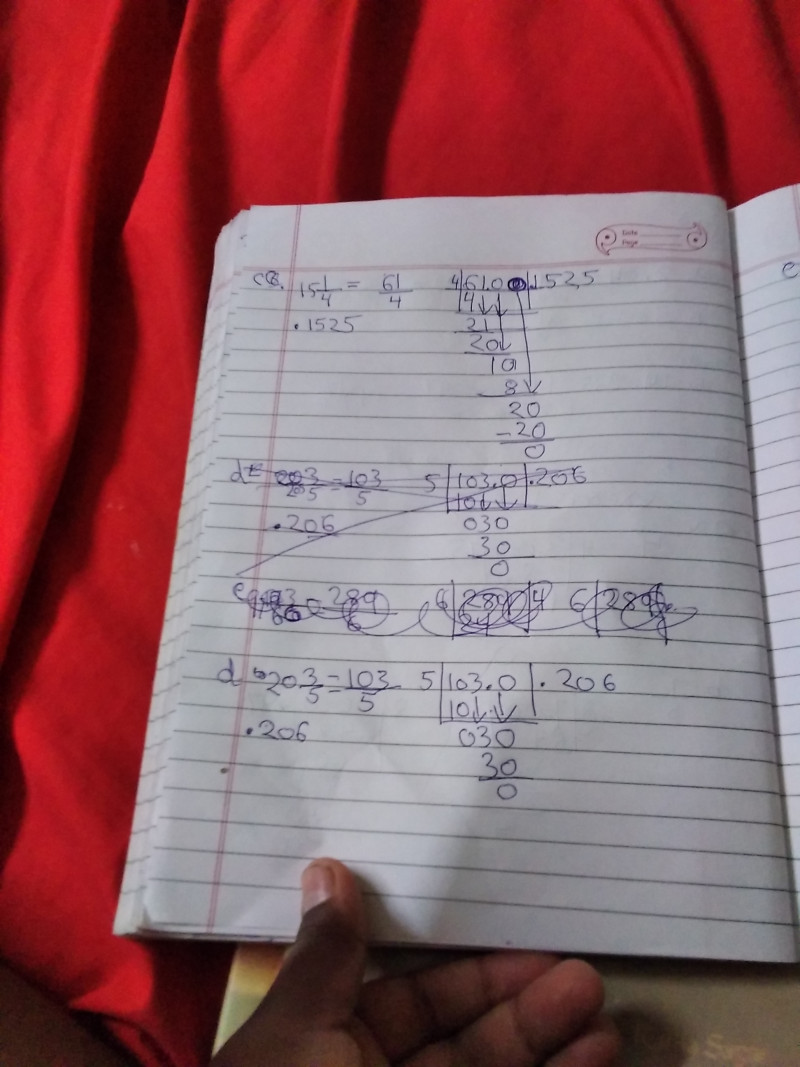 Date
Page
c 15 1/4 = 61/4 4 61.0 .1525
4
.1525 21
20
10
8
20
-20
0
d 20 3/5 = 103/5 5 103.0 .206
10
.206 030
30
0
289/6 6 289 4 6 289
24
d 20 3/5 = 103/5 5 103.0 .206
10
.206 030
30
0